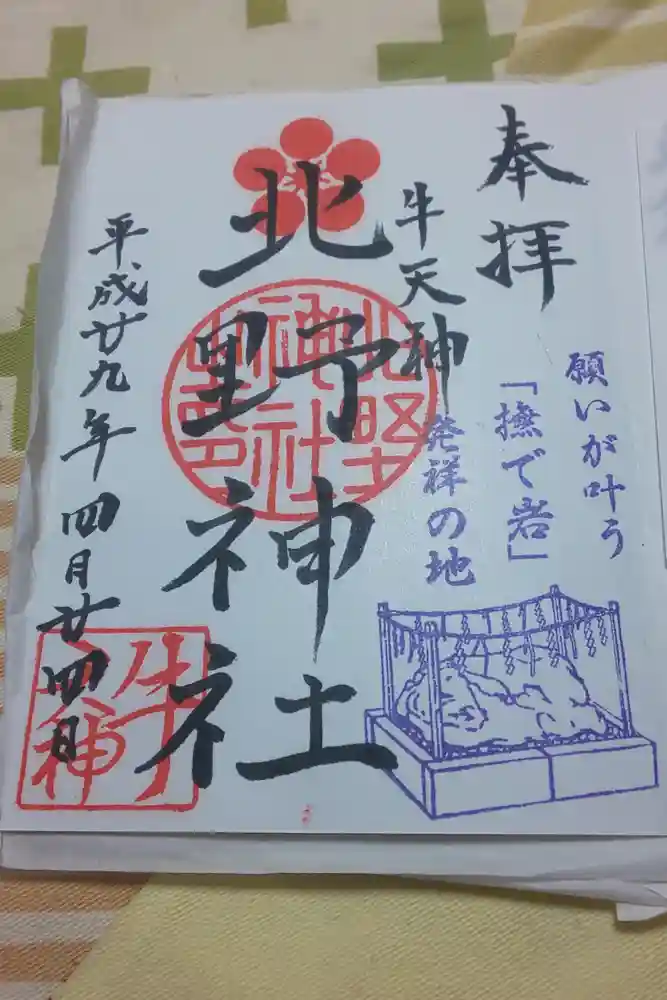 奉拝
願いが叶う
「撫で岩」
発祥の地
牛天神
北野神社
北野
神社
牛
天神
平成廿九年四月廿四日